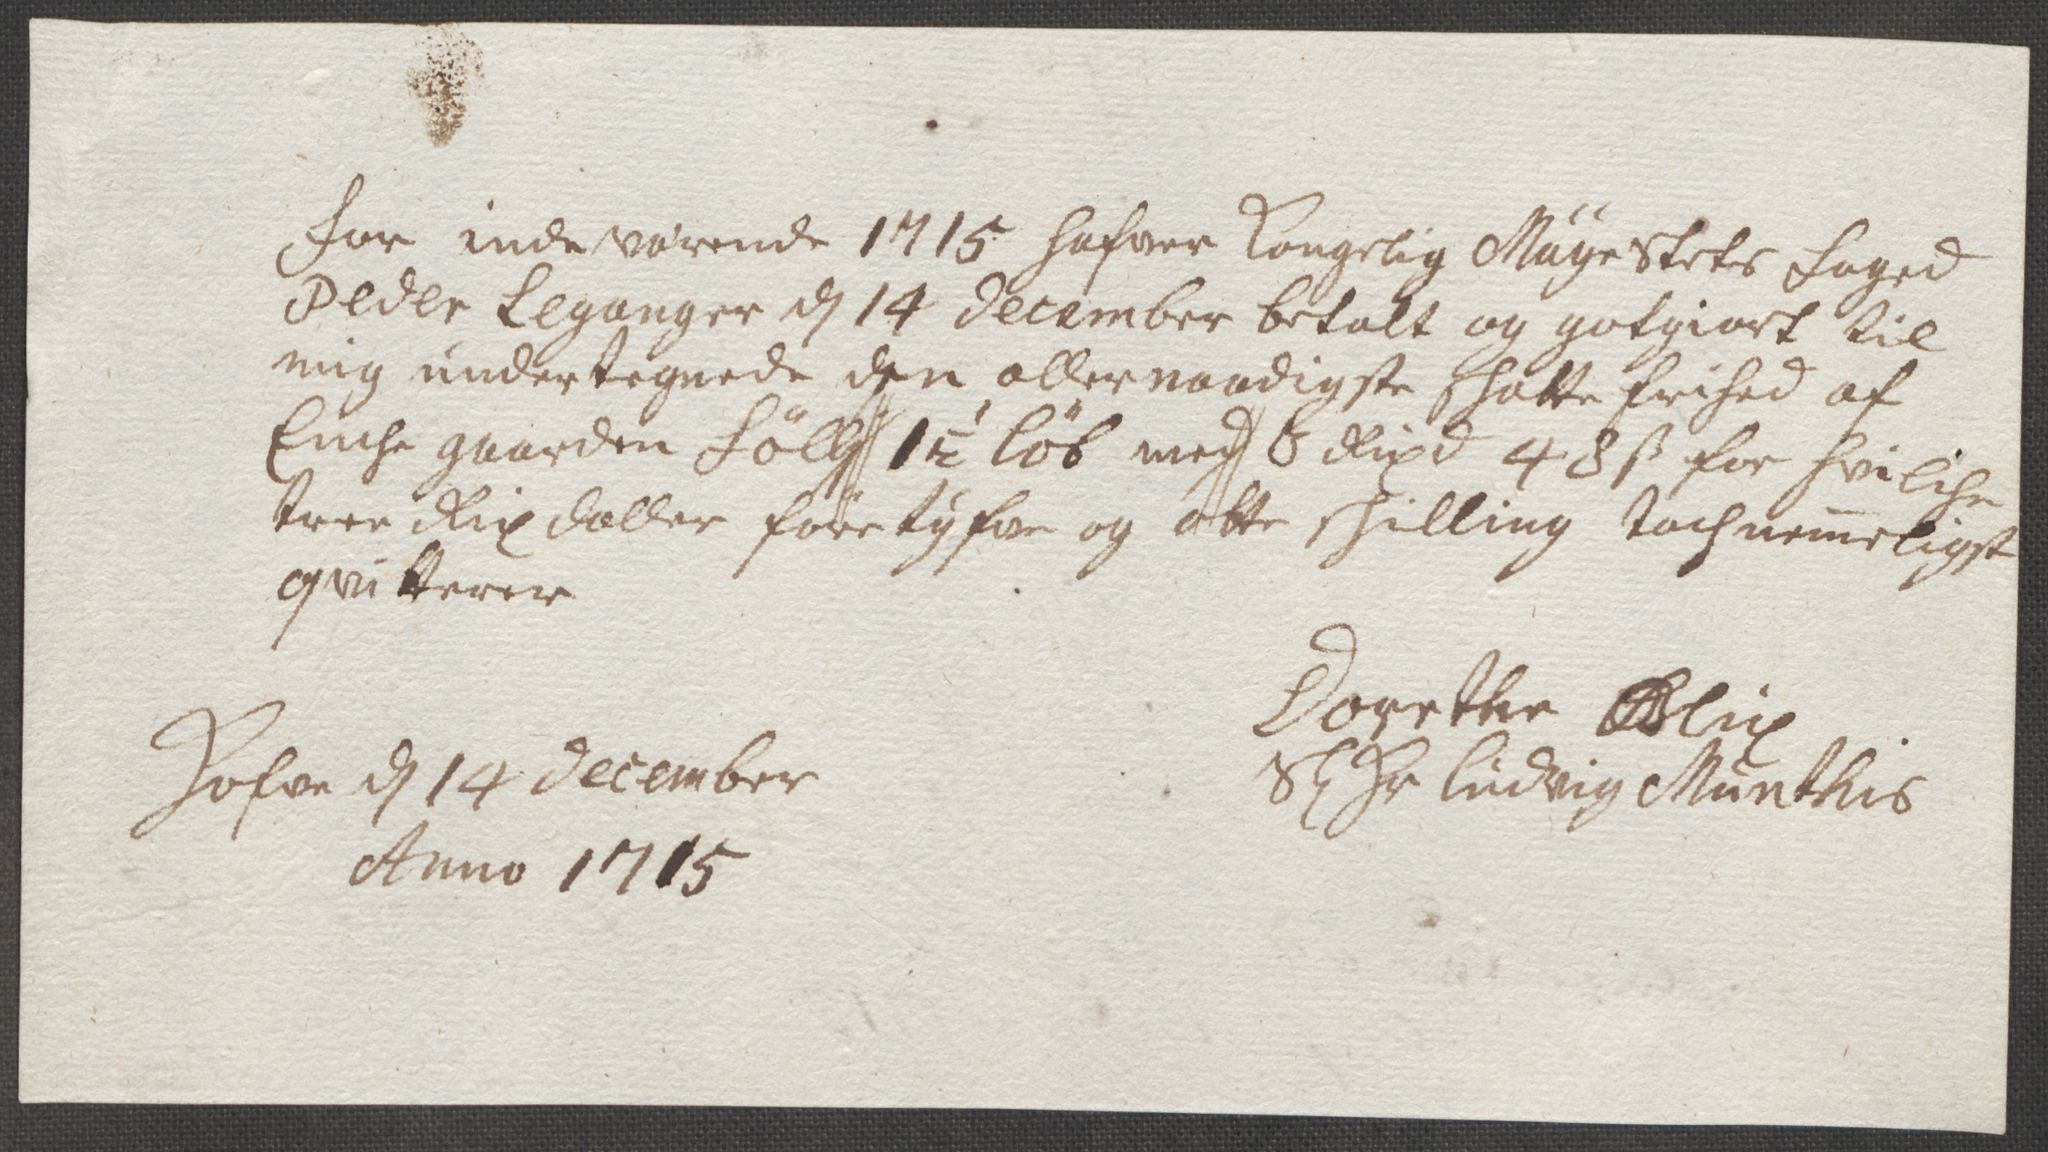 For indeværende 1715 hafver Kongelig Mäyestets Foged
Peder Leganger d 14 december betalt og gotgiort til
mig undertegnede den allernaadigste skatte frihed af
Enche gaarden Föllj 1½ löb med 3 Rixd 48 ß for hvilche
tree Rixdaller före tyfve og otte skilling tachnemmeligst
qvitterer
Dorethe Blix
Sl Hr Ludvig Munthis
Hofve d 14 december
Anno 1715